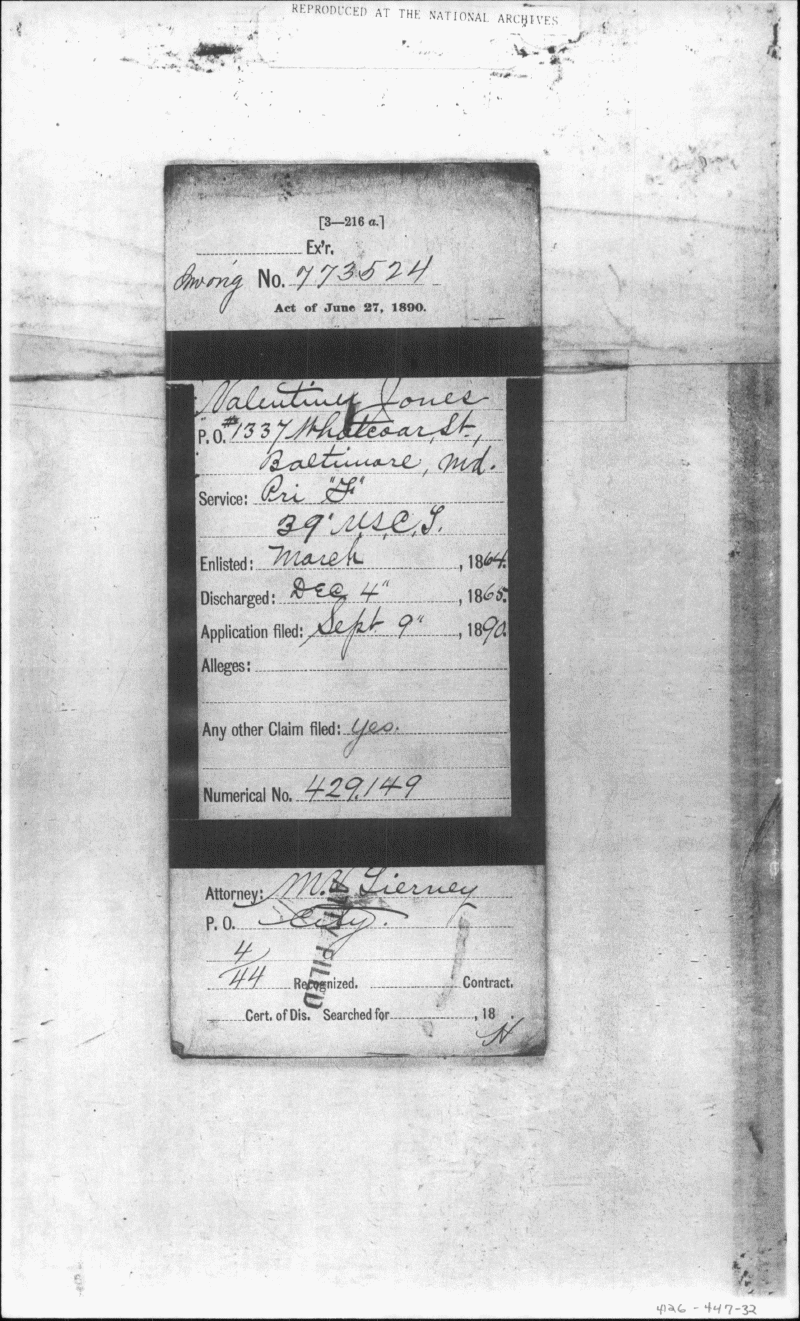 REPRODUCED AT THE NATIONAL ARCHIVES
[3—216 a.]
Ex'r.
No. 773524
Act of June 27, 1890.
Valentine Jones
P. O. #1337 Whatcoat St.,
Baltimore, Md.
Service: Pri "F"
39" U.S.C.T.
Enlisted: March, 1864.
Discharged: Dec 4", 1865.
Application filed: Sept 9", 1890.
Alleges:
Any other Claim filed: yes.
Numerical No. 429,149
Attorney: Tierney
P. O. City.
4/44 Recognized. Contract.
Cert. of Dis. Searched for, 18
N
FILED
426-447-32